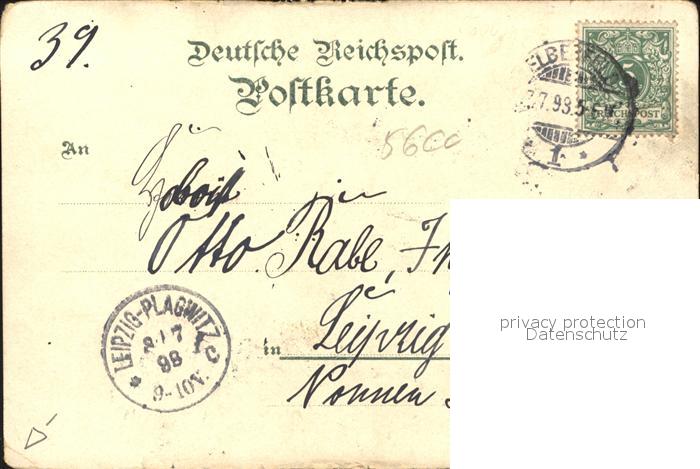 39.
Deutsche Reichspost.
Postkarte.
REICHSPOST
7.98.5-6N
1.
An
5600
Otto Rabe,
LEIPZIG-PLAGWITZ
8 7
98
9-10V.
in Leipzig
Nonnen
privacy protection
Datenschutz